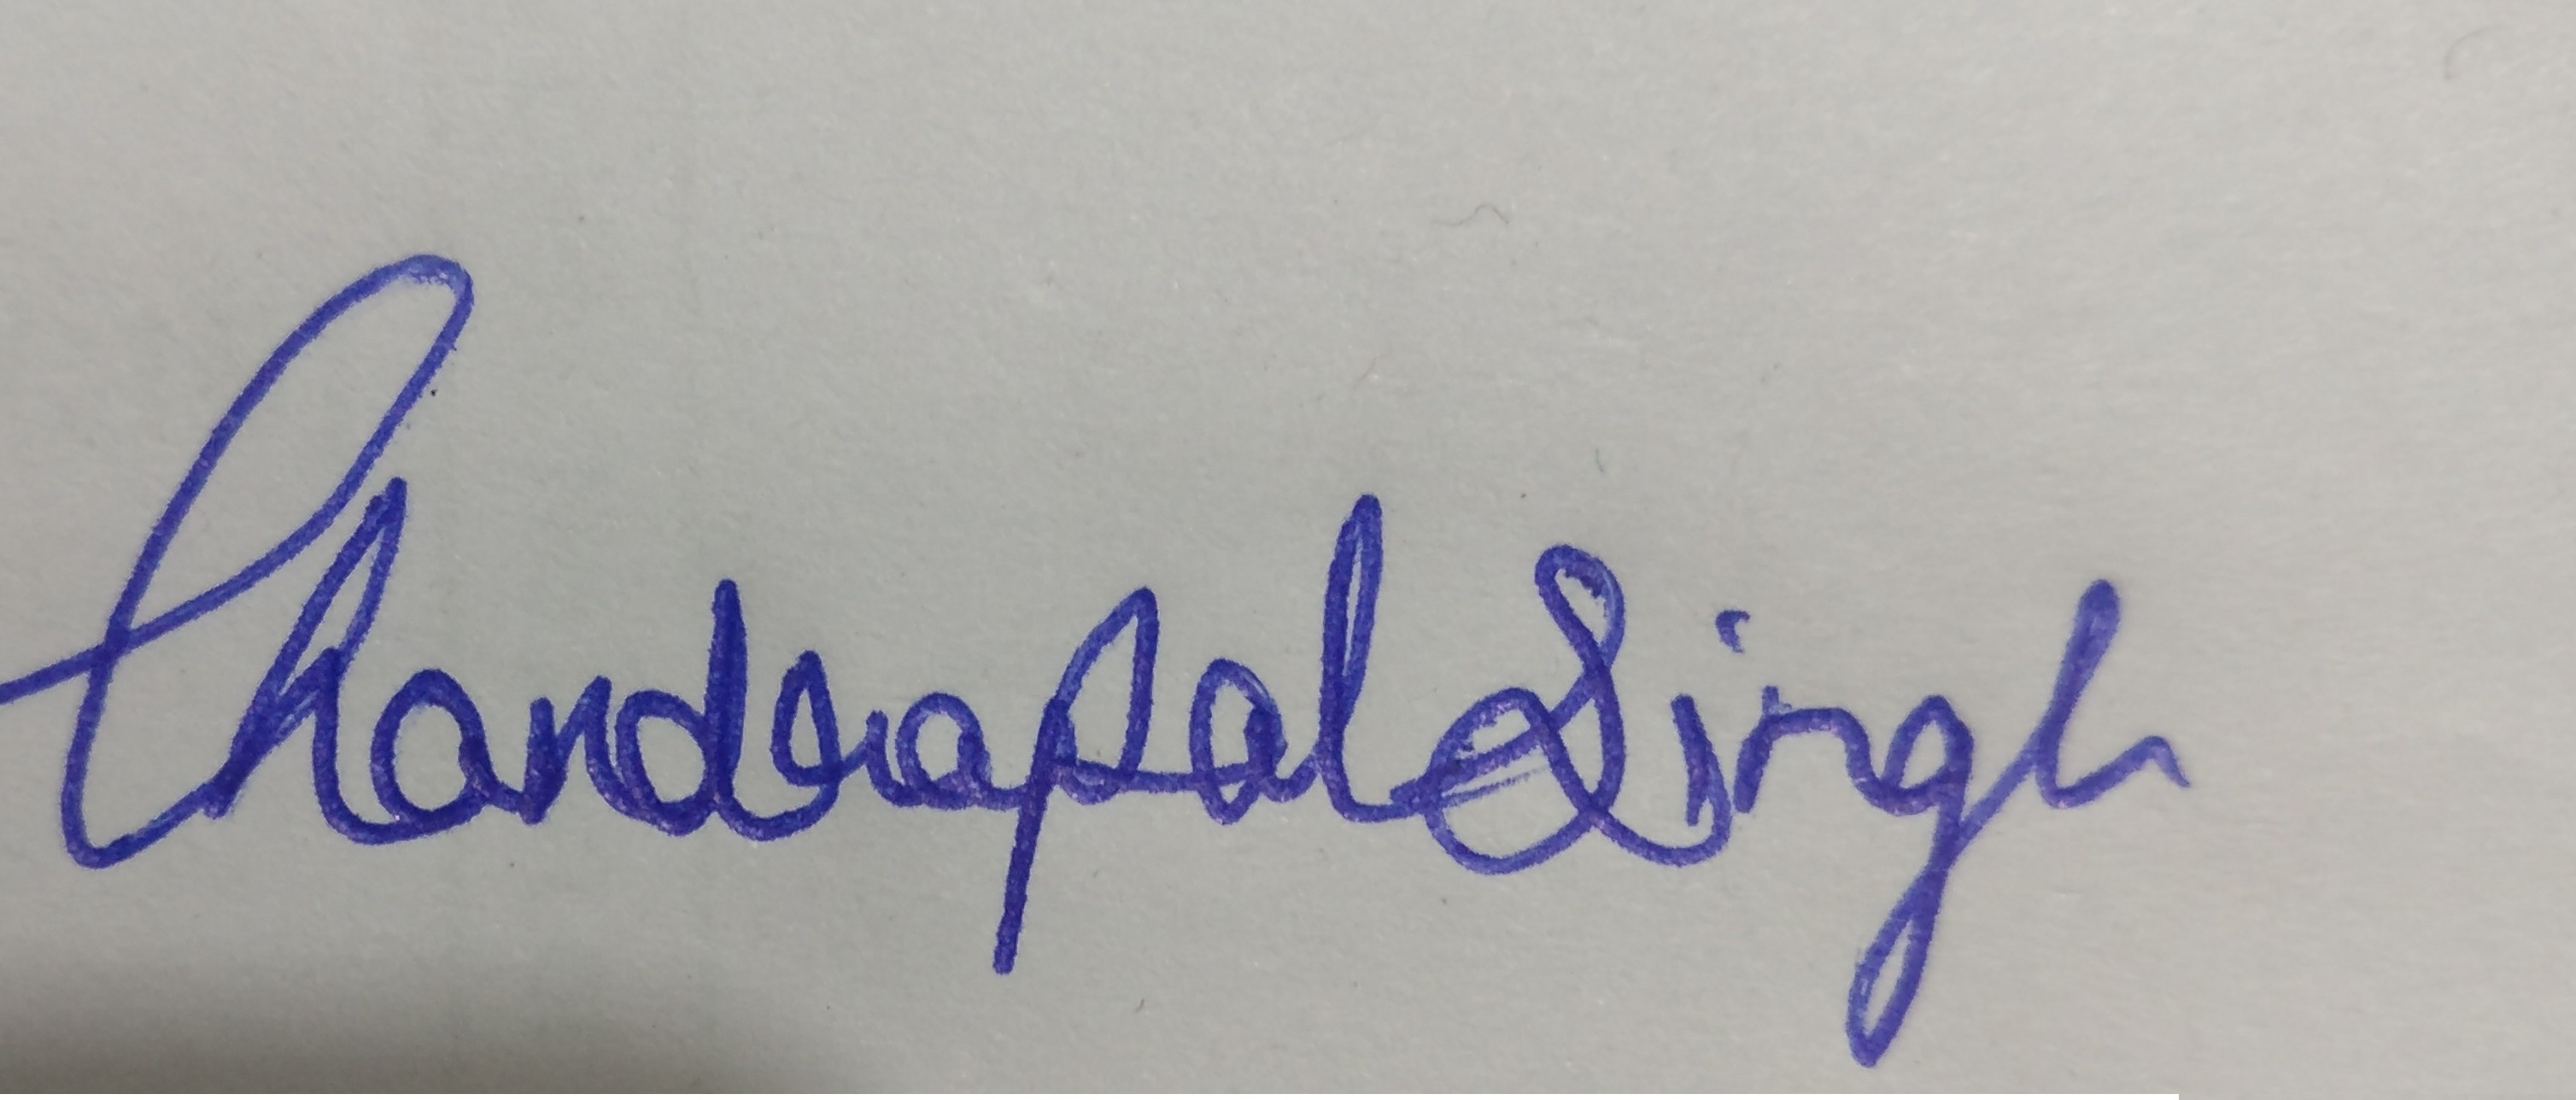 Chandrapal Singh